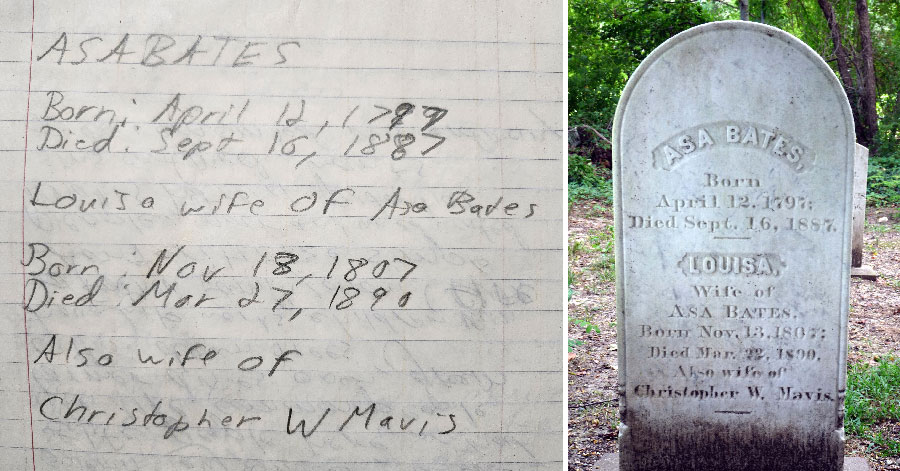 ASA BATES
Born: April 12, 1797
Died: Sept 16, 1887
Louisa wife OF Asa Bades
Born: Nov 18, 1807
Died: Mar 27, 1890
Also wife of
Christopher W Mavis
ASA BATES,
Born
April 12, 1797;
Died Sept. 16, 1887.
LOUISA,
Wife of
ASA BATES.
Born Nov. 13, 1807;
Died Mar. 22, 1890.
Also wife of
Christopher W. Mavis.